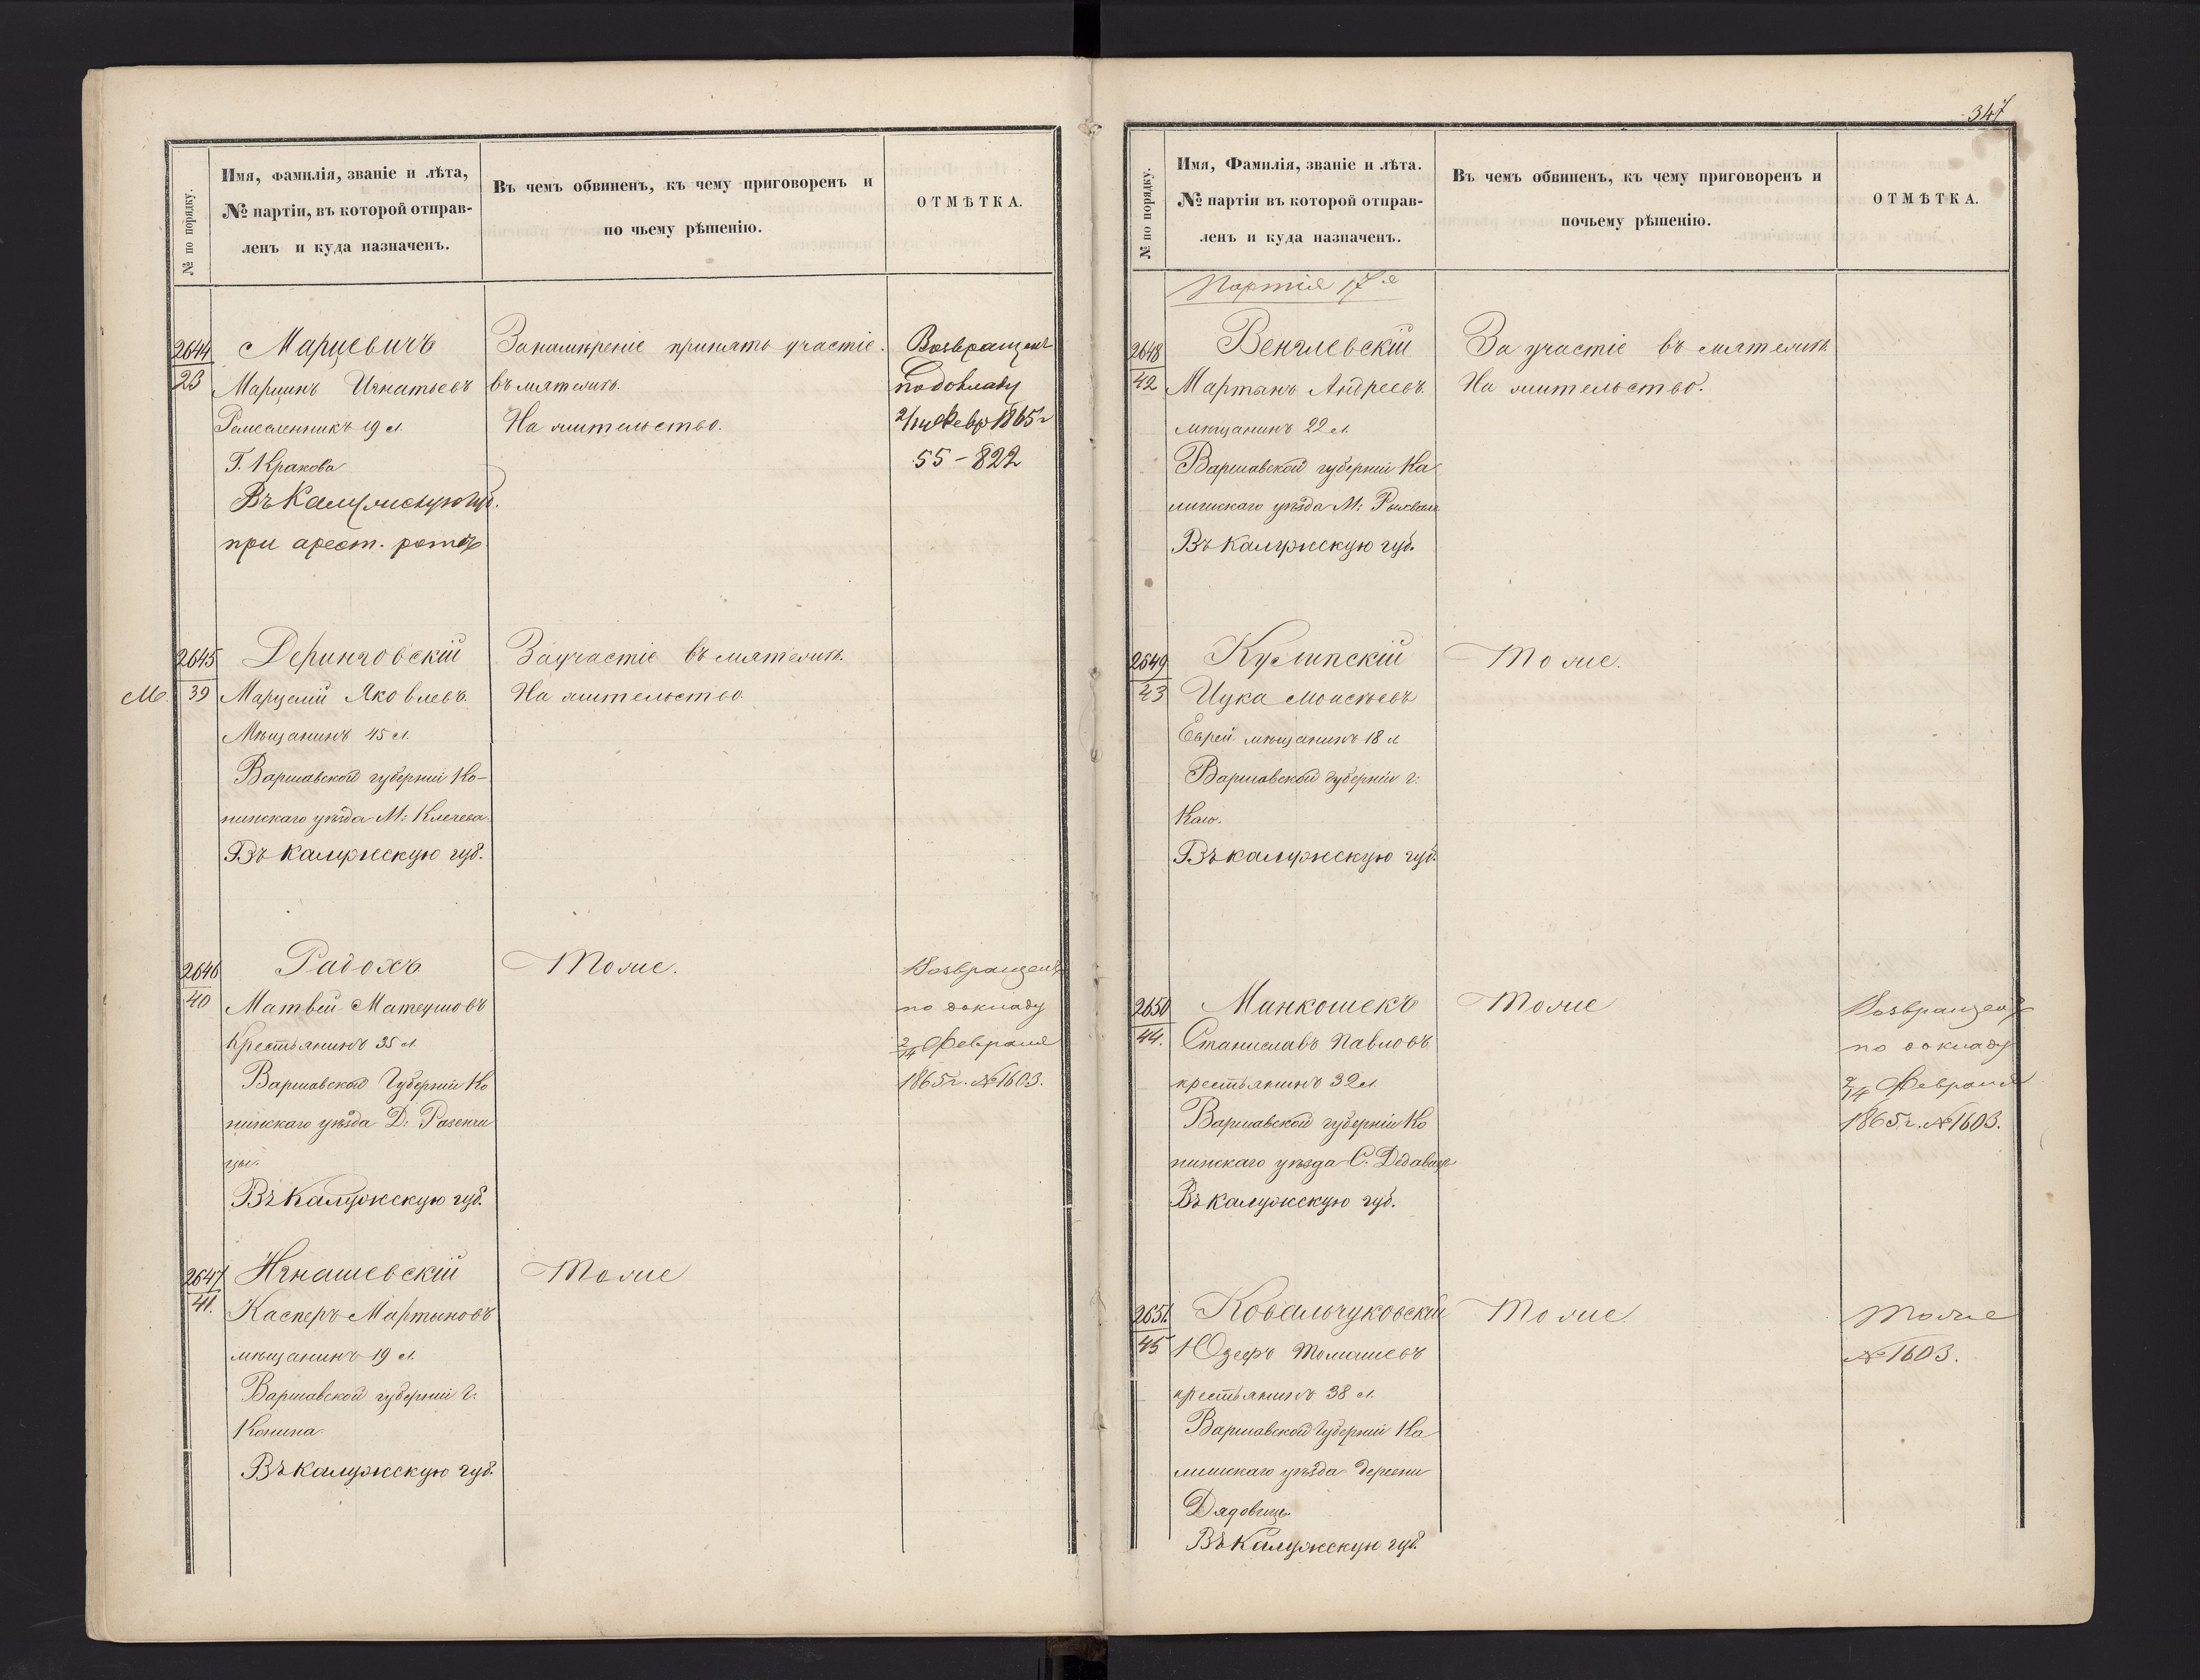 № по порядку.
Имя, фамилія, званіе и лѣта,
№ партіи, въ которой отправ-
ленъ и куда назначенъ.
Въ чемъ обвиненъ, къ чему приговоренъ и
по чьему рѣшенію.
ОТМѢТКА.
2644
23
Марцевичъ
Марцинъ Игнатьевъ
Ремесленникъ 19 л.
Г. Кракова
Въ Калужскую губ.
при арест. ротѣ
За намѣреніе принять участіе
въ мятежѣ.
На жительство.
Возвращенъ
по докладу
2/14 Февр 1865 г
55-822
М.
2645
39
Деринговскій
Марцелій Яковлевъ.
Мѣщанинъ 45 л.
Варшавской губерніи Ко-
нинскаго уѣзда М: Клечева.
Въ Калужскую губ.
За участіе въ мятежѣ.
На жительство.
2646
40
Радохъ
Матвѣй Матеушовъ
Крестьянинъ 35 л.
Варшавской Губерніи Ко
нинскаго уѣзда Д: Разенчи
цы.
Въ Калужскую губ.
Тоже.
Возвращенъ
по докладу
2/14 Февраля
1865 г. № 1603.
2647
41.
Игнашевскій
Касперъ Мартыновъ
мѣщанинъ 19 л.
Варшавской губерніи г:
Конина.
Въ Калужскую губ.
Тоже
347
№ по порядку.
Имя, Фамилія, званіе и лѣта.
№ партіи въ которой отправ-
ленъ и куда назначенъ.
Въ чемъ обвиненъ, къ чему приговоренъ и
почьему рѣшенію.
ОТМѢТКА.
Партія 17я
2648
42
Венглевскій
Мартынъ Андреевъ.
мѣщанинъ 22 л.
Варшавской губерніи Ка
лишскаго уѣзда М:
Въ Калужскую губ.
За участіе въ мятежѣ
На жительство.
2649
43
Куслинскій
Цука Моисѣевъ
Еврей мѣщанинъ 18 л
Варшавской губерніи г:
Коло.
Въ калужскую губ.
Тоже.
2650
44.
Манкошекъ
Станиславъ Павловъ
крестьянинъ 32 л.
Варшавской губерніи Ко
нинскаго уѣзда С:
Въ калужскую губ.
Тоже
Возвращенъ
по докладу
2/14 Февраля
1865 г. № 1603.
2651.
45
Ковальчуковскій
Юзефъ Томашевъ
крестьянинъ 38 л.
Варшавской Губерніи Ка
лишскаго уѣзда деревни
Дядовицъ.
Въ Калужскую губ.
Тоже
Тоже
№ 1603.